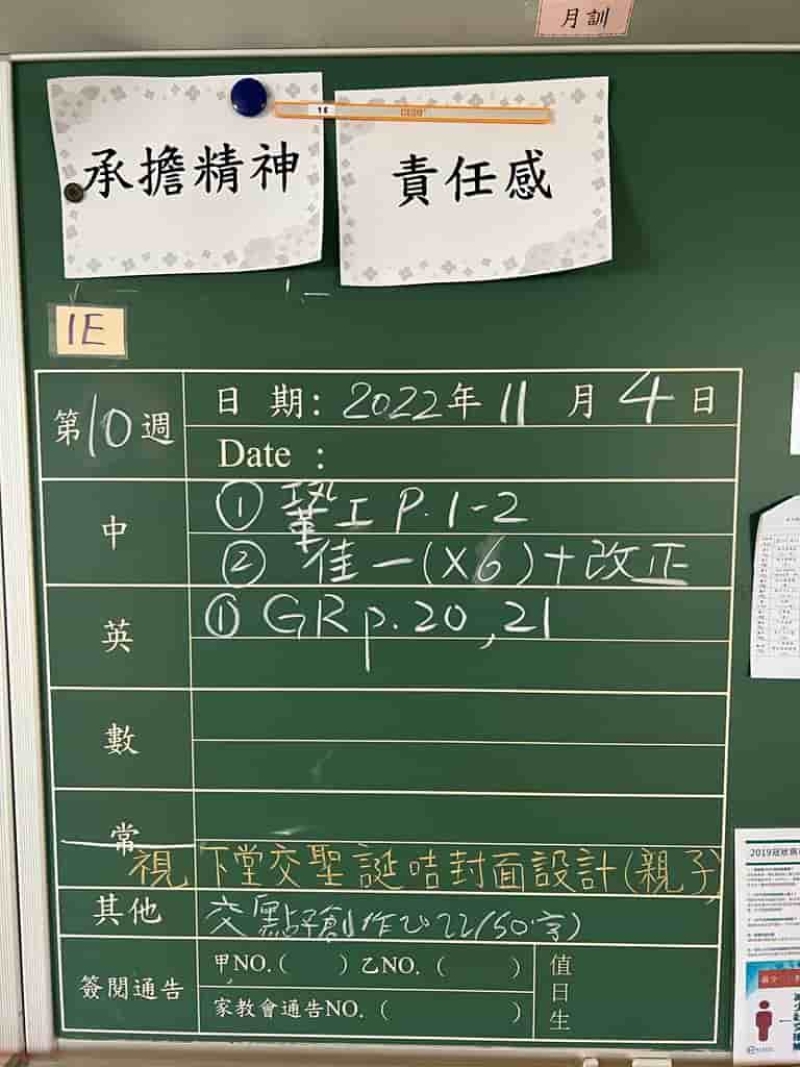 月訓
承擔精神
責任感
1E
第10週
日 期: 2022年 11 月 4 日
Date :
中
① 工 P. 1-2
② 佳一(X6)+改正
英
① GR p. 20, 21
數
常
視 下堂交聖誕咭封面設計(親子)
其他
交點子創作 22/(50字)
簽閱通告
甲NO.( ) 乙NO. ( )
家教會通告NO. ( )
值日生